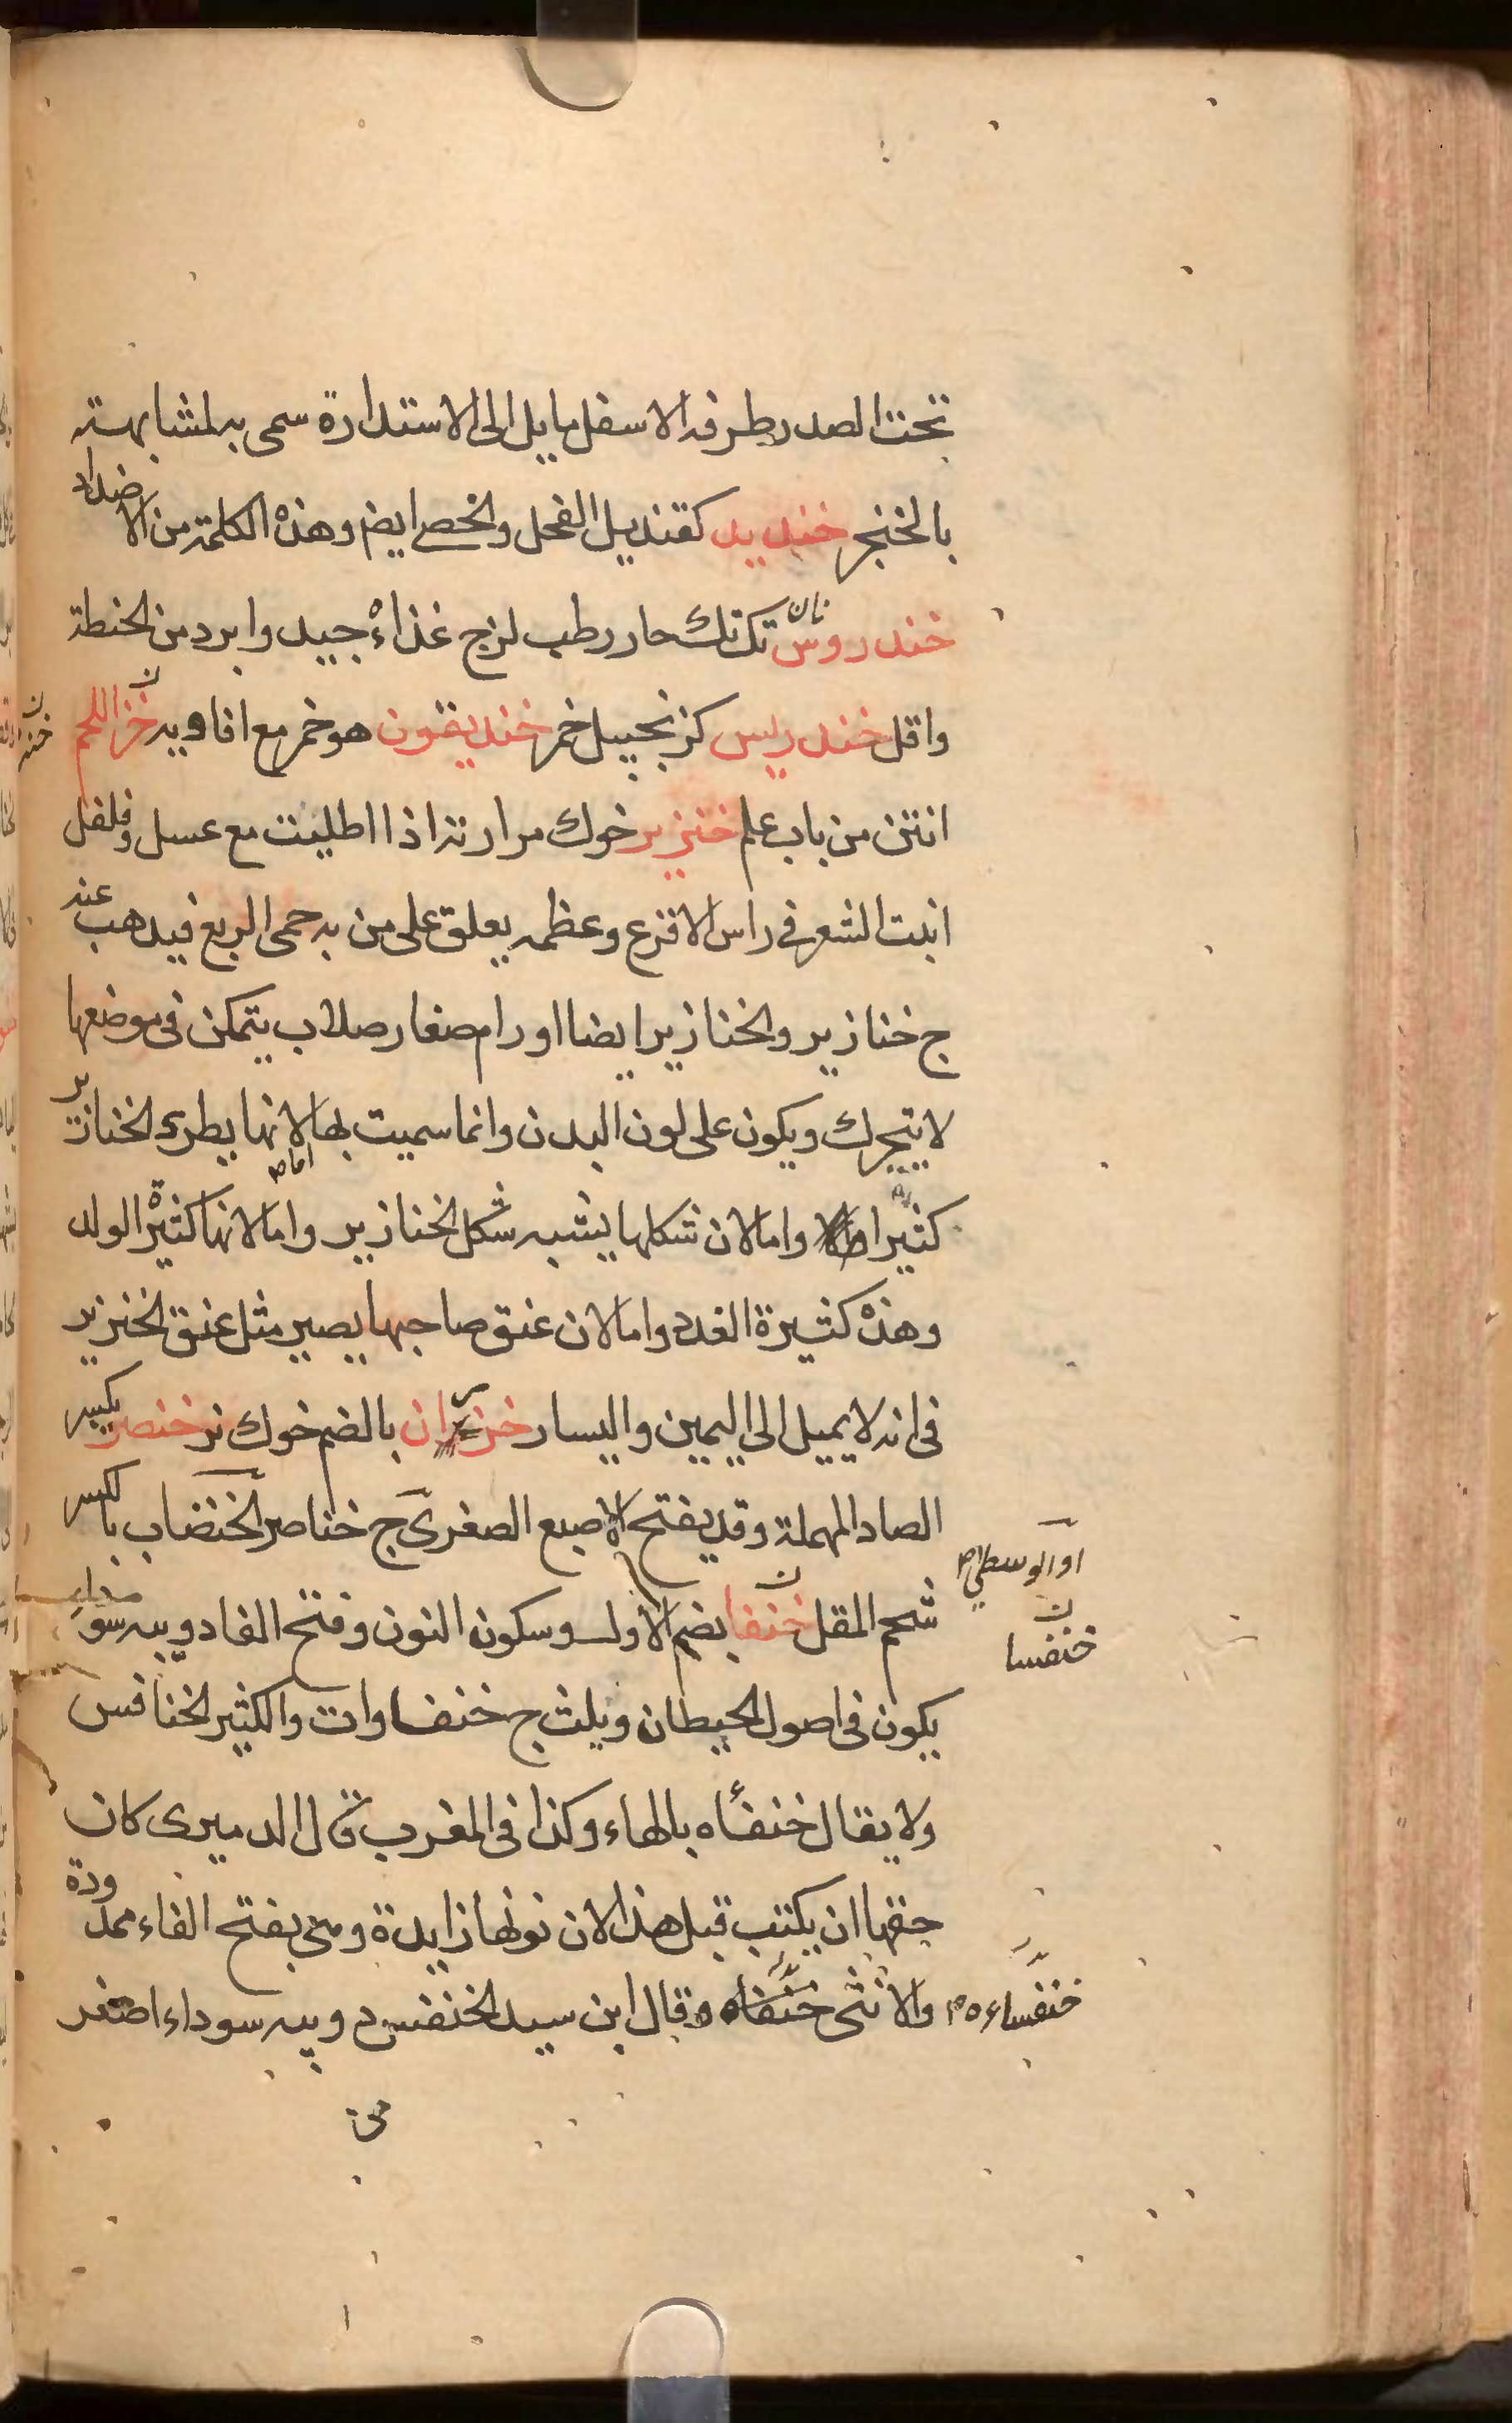 تحت الصدر طرفه الاسفل مايل الى الاستدارة سمى به لمشابهته
بالخنجر خنديد كقنديل الفحل والخصى ايض وهذه الكلمة من الاضداد
خندروس نان تك تك حار رطب لزج غذاءه جيد وابرد من الحنطة
واقل خندريس كزنجبيل خمر خنديقون هو خمر مع افاويه خز اللحم
انتن من باب علم خنزير خوك مرارته اذا اطليت مع عسل وفلفل
انبت الشعر في راس الاقرع وعظمه يعلق على من به حمى الربع فيذهب عنه
ج خنازير والخنازير ايضا اورام صغار صلاب يتمكن فى موضعها
لا يتحرك ويكون على لون البدن وانما سميت بها لانها يطرء الخنازير
كثيرا واما لان شكلها يشبه شكل الخنازير واما لانها كثيرة الولد
وهذه كثيرة الغدد واما لان عنق صاحبها يصير مثل عنق الخنزير
فى انه لا يميل الى اليمين واليسار خنزران بالضم خوك نر خنصر بكسر
الصاد المهملة وقد يفتح الاصبع الصغرى ج خناصر الخنضاب بالكسر
او الوسطى صح
شحم المقل خنفا بضم الاول وسكون النون وفتح الفا دويبه سوداء
خنفسا
يكون فى اصول الحيطان ويلث ج خنفاوات والكثير الخنافس
ولا يقال خنفأه بالهاء وكذا فى المغرب قال الدميرى كان
حقها ان يكتب قبل هذا لان نونها زايدة وهى بفتح الفاء ممدودة
والانثى خنفاه وقال ابن سيد الخنفس دويبه سوداء اصغر
خنفساءه صح
من